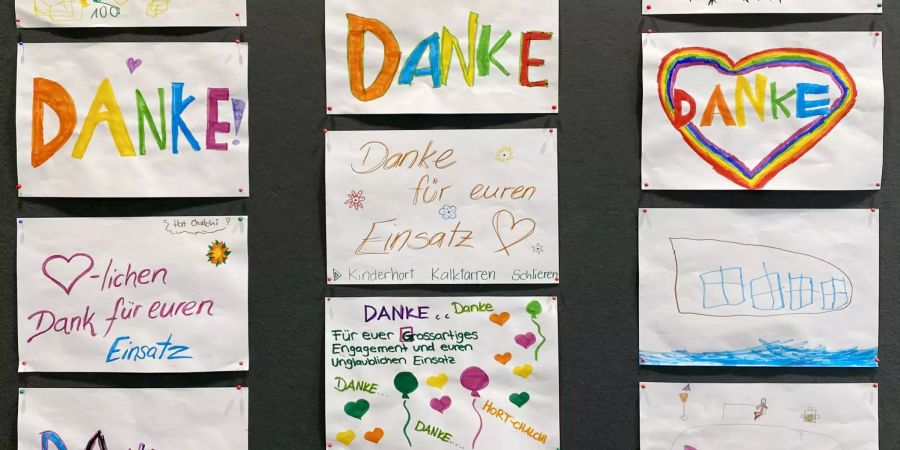 100
DANKE!
Hort Chalchi ?
♡-lichen
Dank für euren
Einsatz
DANKE
Danke
für euren
Einsatz
Kinderhort Kalktarren Schlieren
DANKE.. Danke
Für euer Grossartiges
Engagement und euren
Unglaublichen Einsatz
DANKE....
HORT-CHALCHI
DANKE.....
DANKE